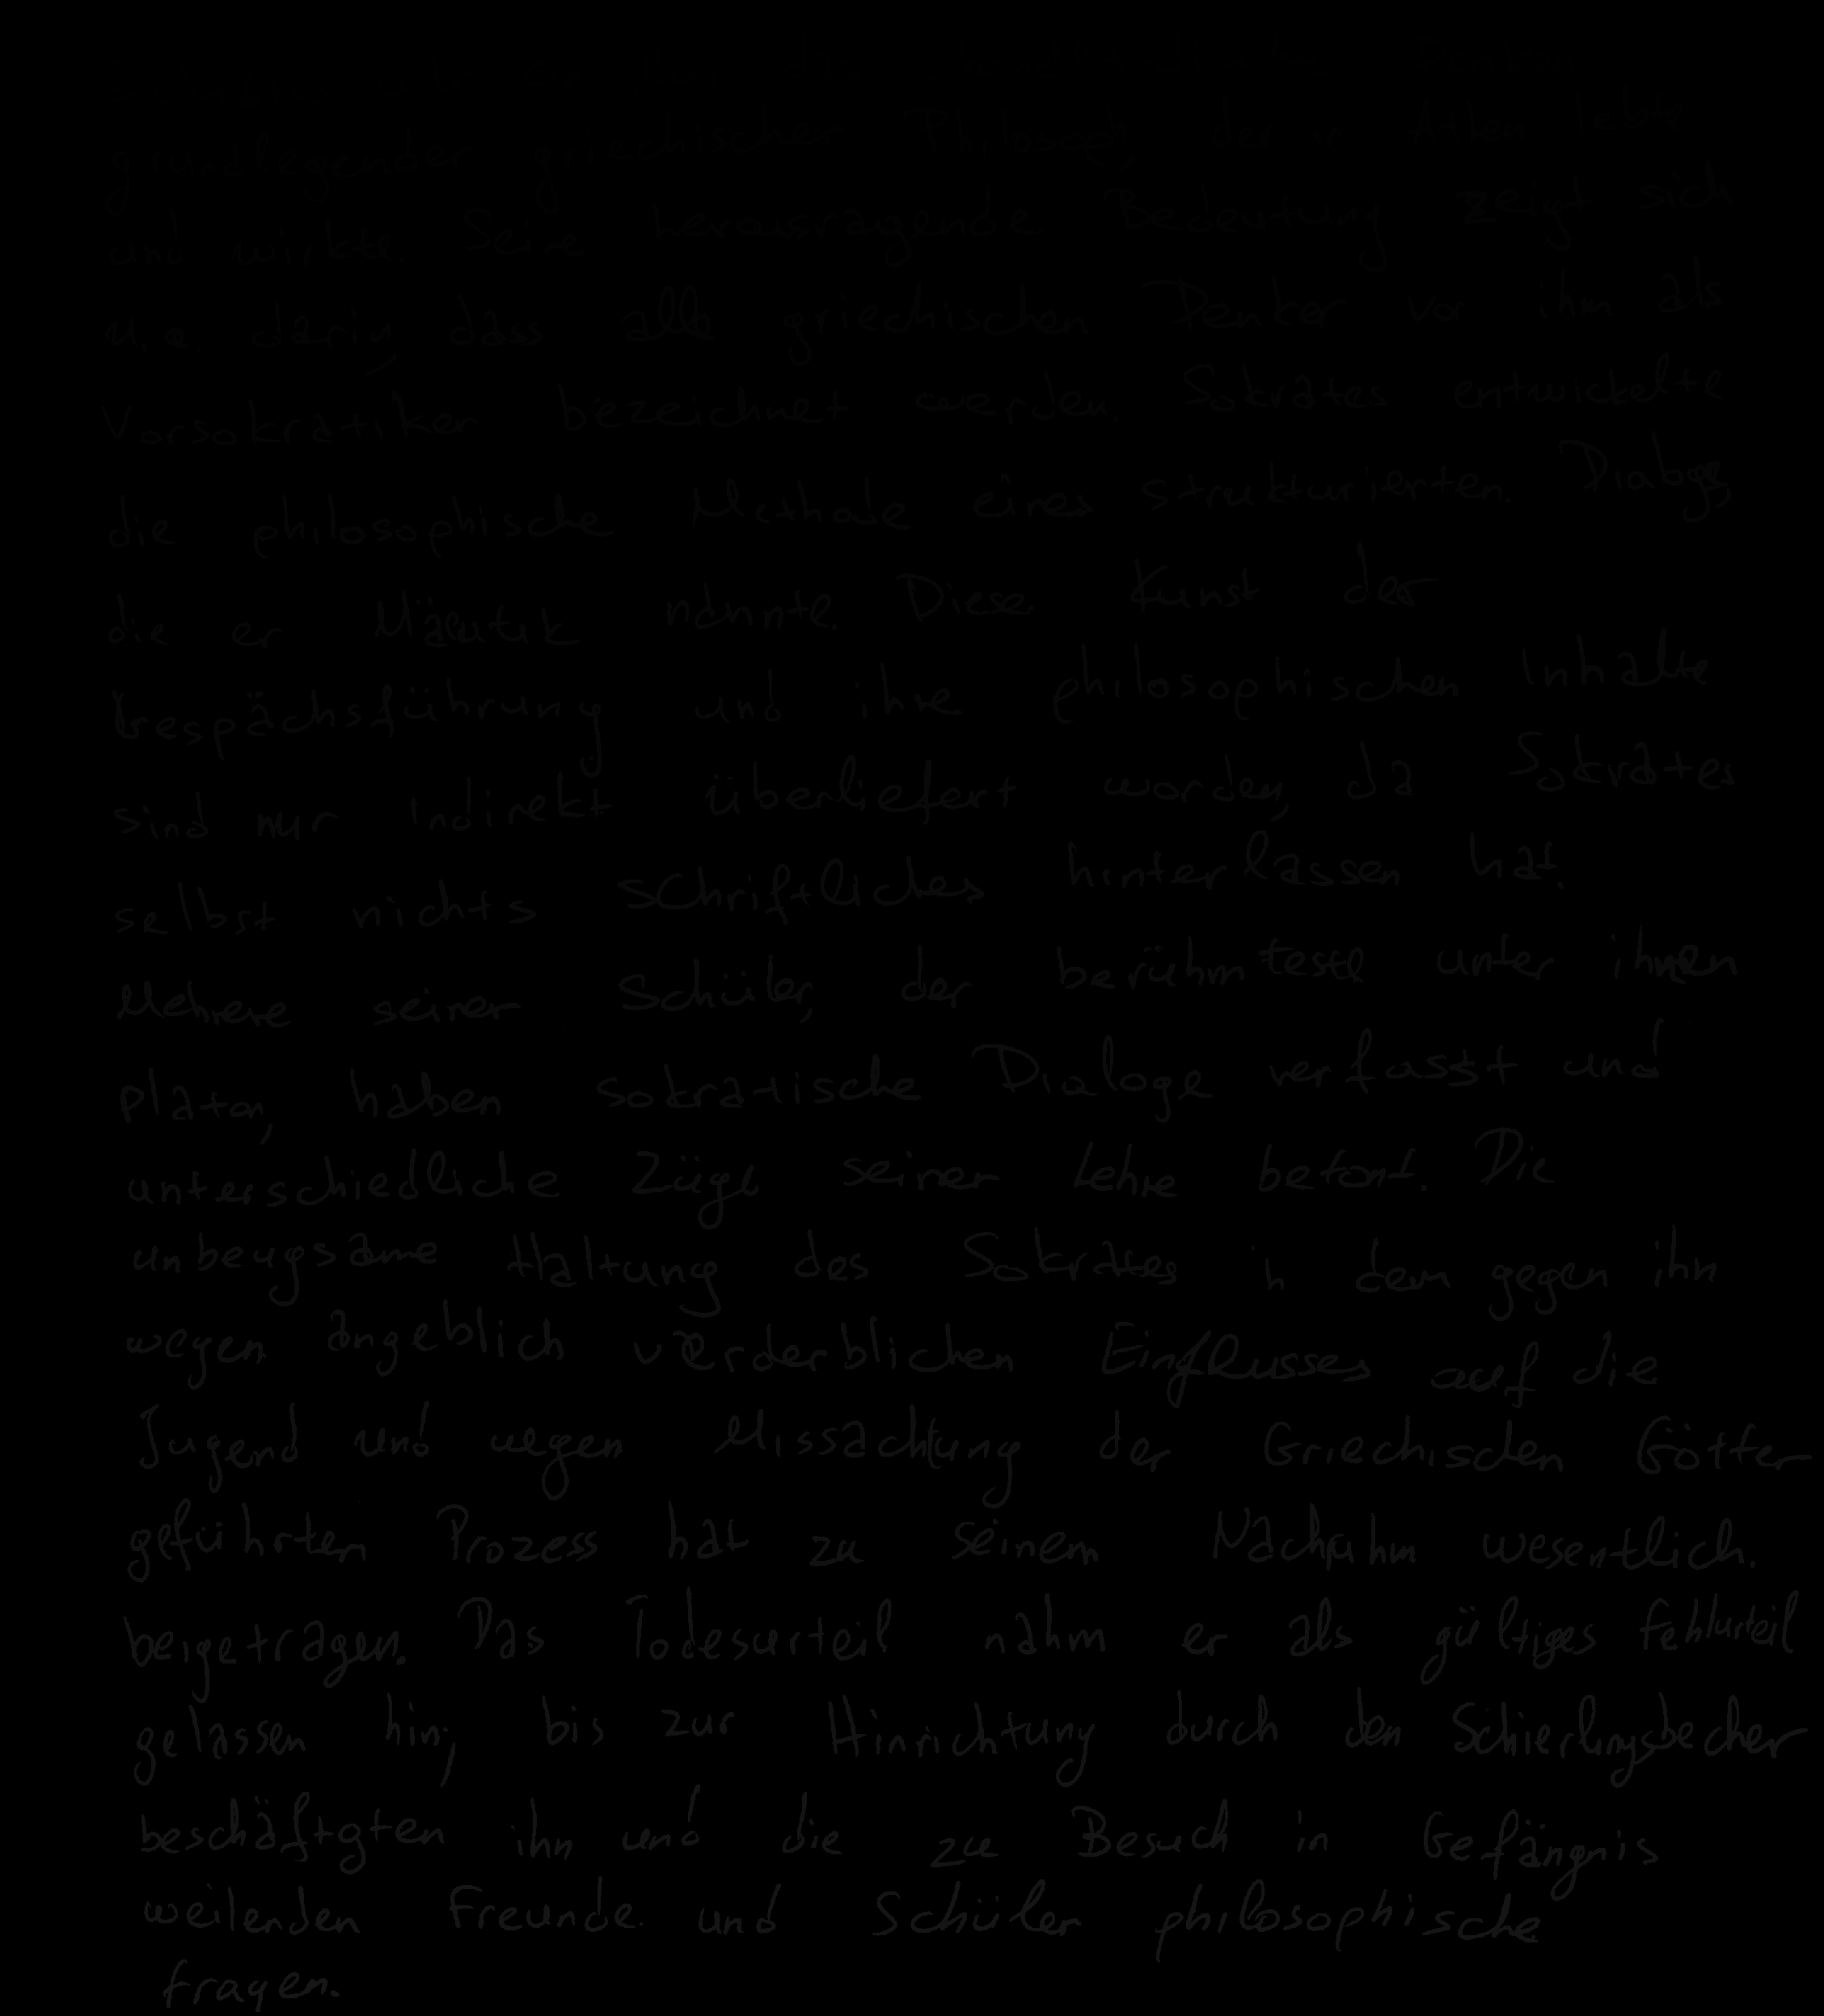 grundlegender griechischer Philosoph, der in Athen lebte
und wirkte. Seine herausragende Bedeutung zeigt sich
u.a. darin, dass alle griechischen Denker vor ihm als
Vorsokratiker bezeichnet werden. Sokrates entwickelte
die philosophische Methode eines strukturierten. Dialogs,
die er Mäeutik nannte. Diese Kunst der
Gespächsführung und ihre philosophischen Inhalte
sind nur indirekt überliefert worden, da Sokrates
selbst nichts Schriftliches hinterlassen hat.
Mehrere seiner Schüler, der berühmteste unter ihnen
Platon, haben sokratische Dialoge verfasst und
unterschiedliche Züge seiner Lehre betont. Die
unbeugsame Haltung des Sokrates in dem gegen ihn
wegen angeblich verderblichen Einflusses auf die
Jugend und wegen Missachtung der Griechischen Götter
geführten Prozess hat zu seinem Nachruhm wesentlich.
beigetragen. Das Todesurteil nahm er als gültiges Fehlurteil
gelassen hin; bis zur Hinrichtung durch den Schierlingsbecher
beschäftgten ihn und die zu Besuch in Gefängnis
weilenden Freunde und Schüler philosophische
Fragen.